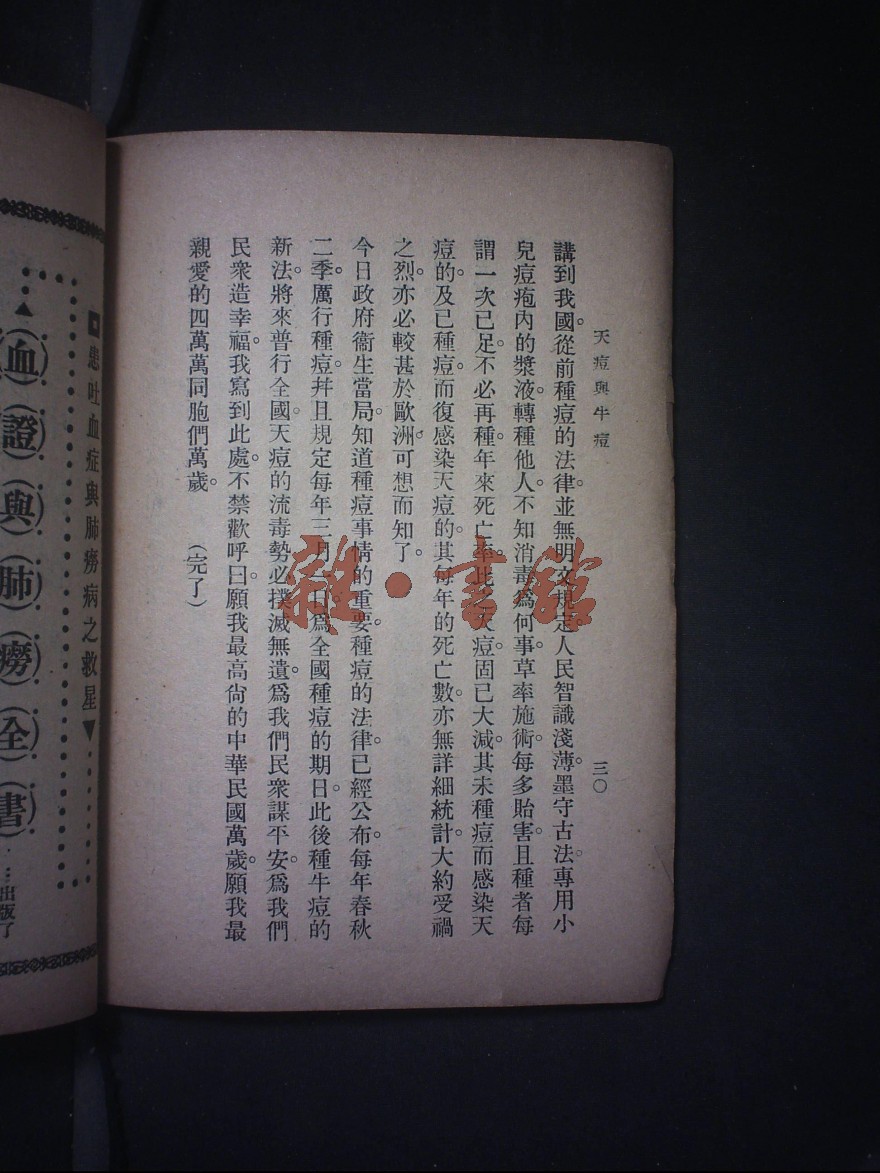 天痘與牛痘
三〇
講到我國。從前種痘的法律。並無明文規定。人民智識淺薄。墨守古法。專用小
兒痘疱內的漿液。轉種他人。不知消毒為何事。草率施術。每多貽害。且種者每
謂一次已足。不必再種。年來死亡率。比之天痘。固已大減。其未種痘而感染天
痘的。及已種痘。而復感染天痘的。其每年的死亡數。亦無詳細統計。大約受禍
之烈。亦必較甚於歐洲。可想而知了。
今日政府衞生當局。知道種痘事情的重要。種痘的法律。已經公布。每年春秋
二季。厲行種痘。幷且規定每年三月一日。爲全國種痘的期日。此後種牛痘的
新法。將來普行全國。天痘的流毒。勢必撲滅無遺。爲我們民衆謀平安。爲我們
民衆造幸福。我寫到此處。不禁歡呼曰。願我最高尙的中華民國萬歲。願我最
親愛的四萬萬同胞們萬歲。 (完了)
雜·書館
患吐血症與肺癆病之救星▼
血證與肺癆全書
出版了